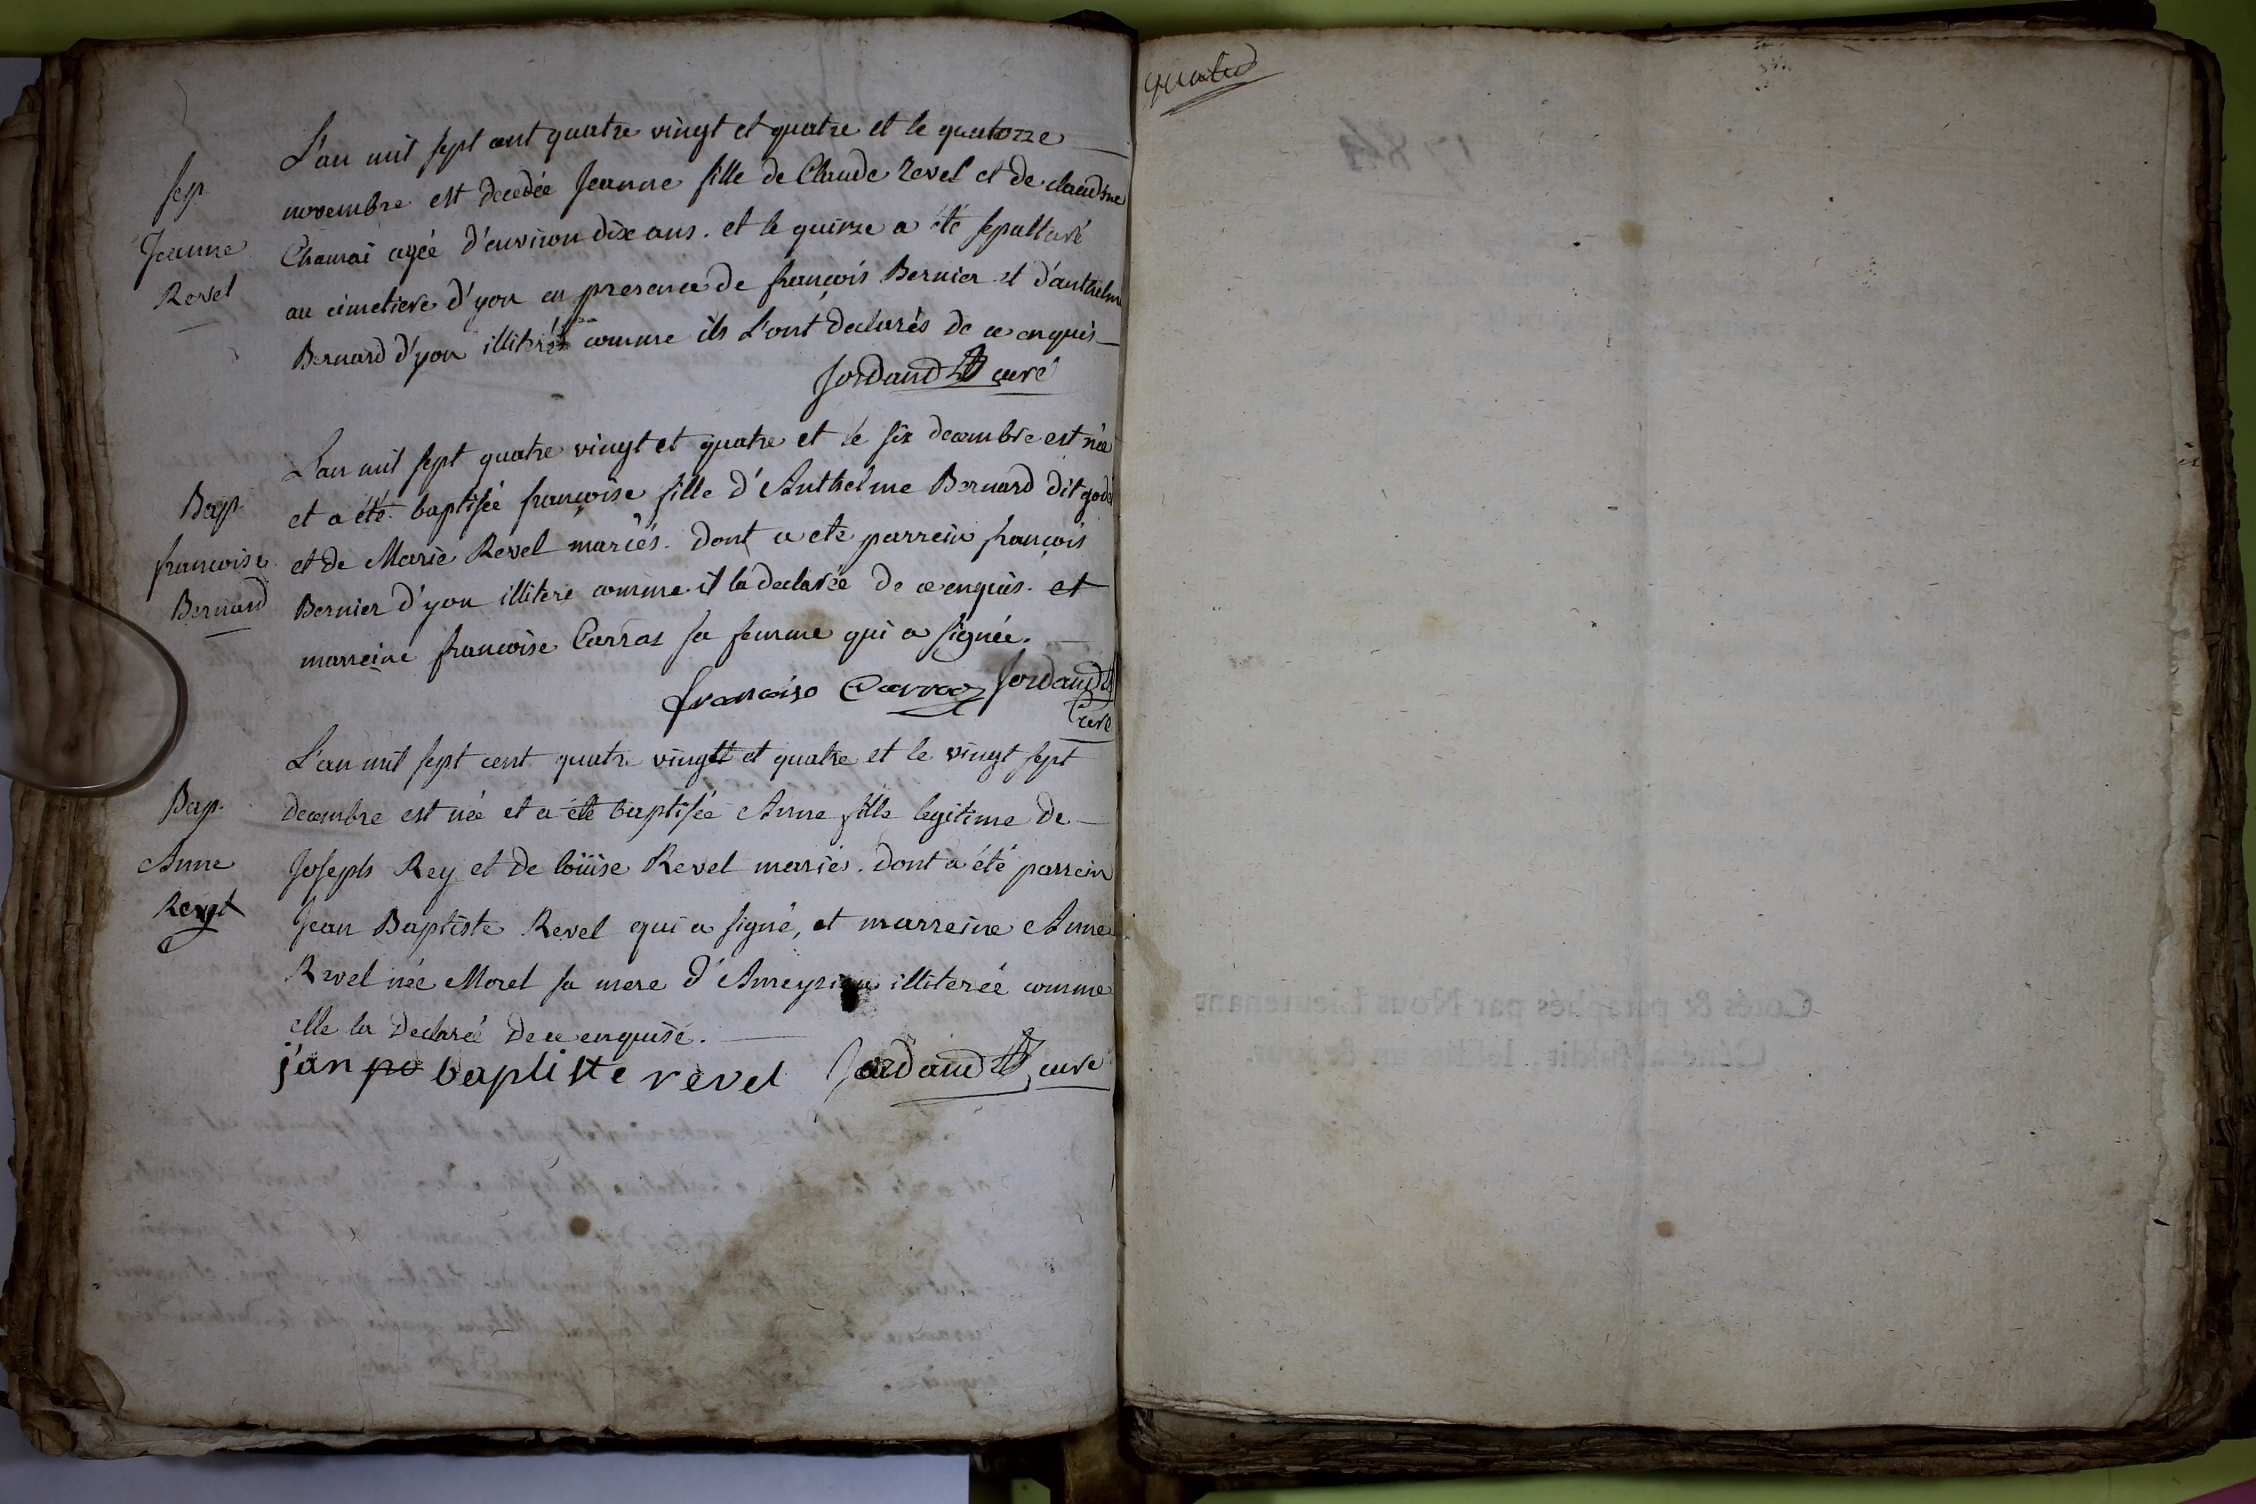 Sep.
Jeanne
Revel
L'an mil sept cent quatre vingt et quatre et le quatorze
novembre est decedée Jeanne fille de Claude revel et de claudine
Chamai agée d'environ dix ans. et le quinze a été sepulturé
au cimetiere d'yon en presence de françois Bernier et d'anthelme
Bernard d'yon illiterés comme ils L'ont declarés de ce enquis
Jordand curé
Bap.
francoise
Bernard
L'an mil sept quatre vingt et quatre et le six decembre est née
et a été baptisée françoise fille d'Anthelme Bernard dit godé
et de Marie Revel mariés. Dont a eté parrein françois
Bernier d'yon illiteré comme il la declarée de ce enquis. et
marreine francoise Carraz sa femme qui a signée.
francoise Carraz Jordand
Curé
Bap.
Anne
Rey
L'an mil sept cent quatre vingt et quatre et le vingt sept
decembre est née et a été baptisée Anne fille legitime de
Joseph Rey et de loüise Revel mariés. Dont a été parrein
Jean Baptiste Revel qui a signé, et marreine Anne
Revel née Morel sa mere d'Ameyzieu illiterée comme
elle la declarée de ce enquise.
j'an po baptiste revel Jordand curé
quatre
1784
Cotés & paraphés par Nous Lieutenant